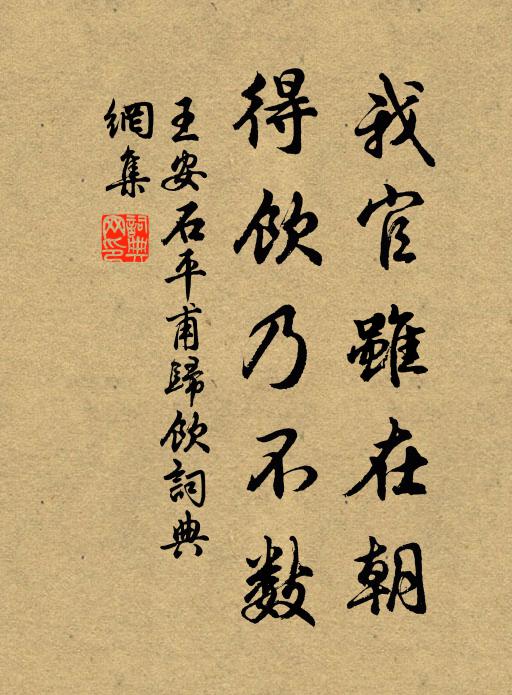 我官雖在朝
得飲乃不数
王安石平甫歸飲詞典
網集
詞典網印